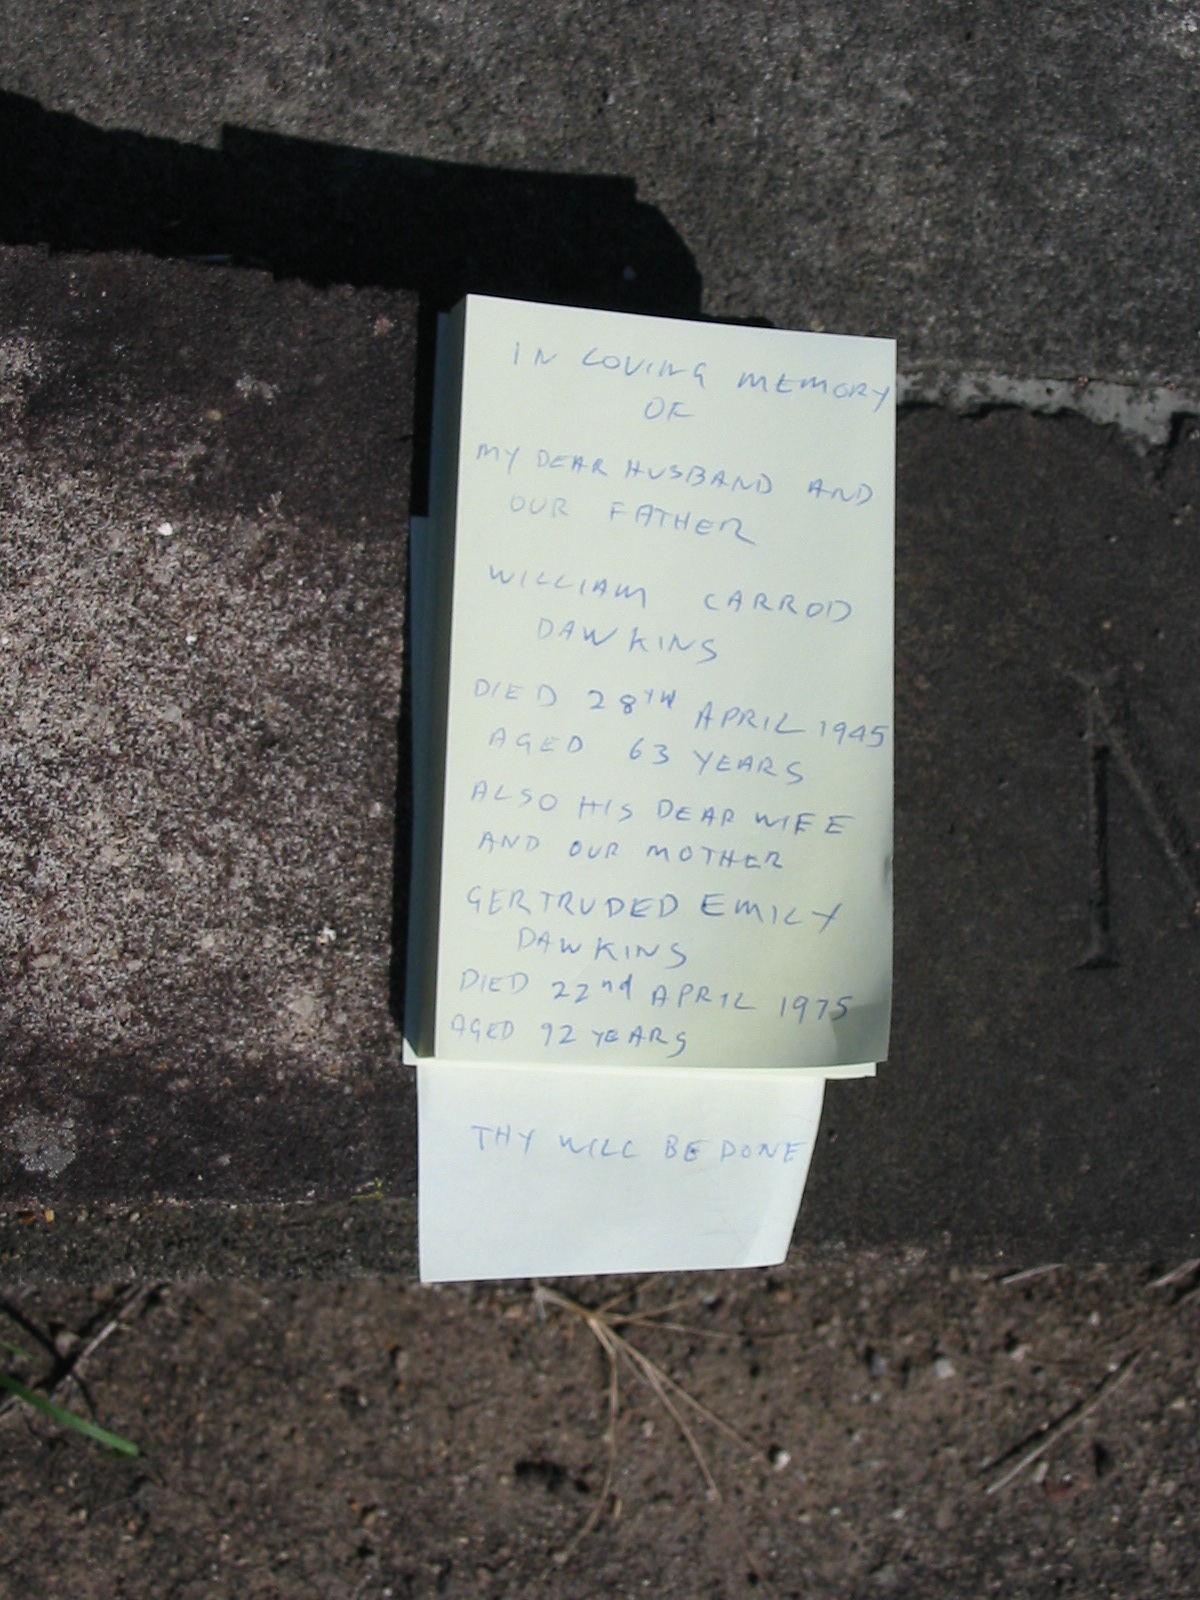 IN LOVING MEMORY
OF
MY DEAR HUSBAND AND
OUR FATHER
WILLIAM CARROD
DAWKINS
DIED 28TH APRIL 1945
AGED 63 YEARS
ALSO HIS DEAR WIFE
AND OUR MOTHER
GERTRUDED EMILY
DAWKINS
DIED 22nd APRIL 1975
AGED 92 YEARS
THY WILL BE DONE